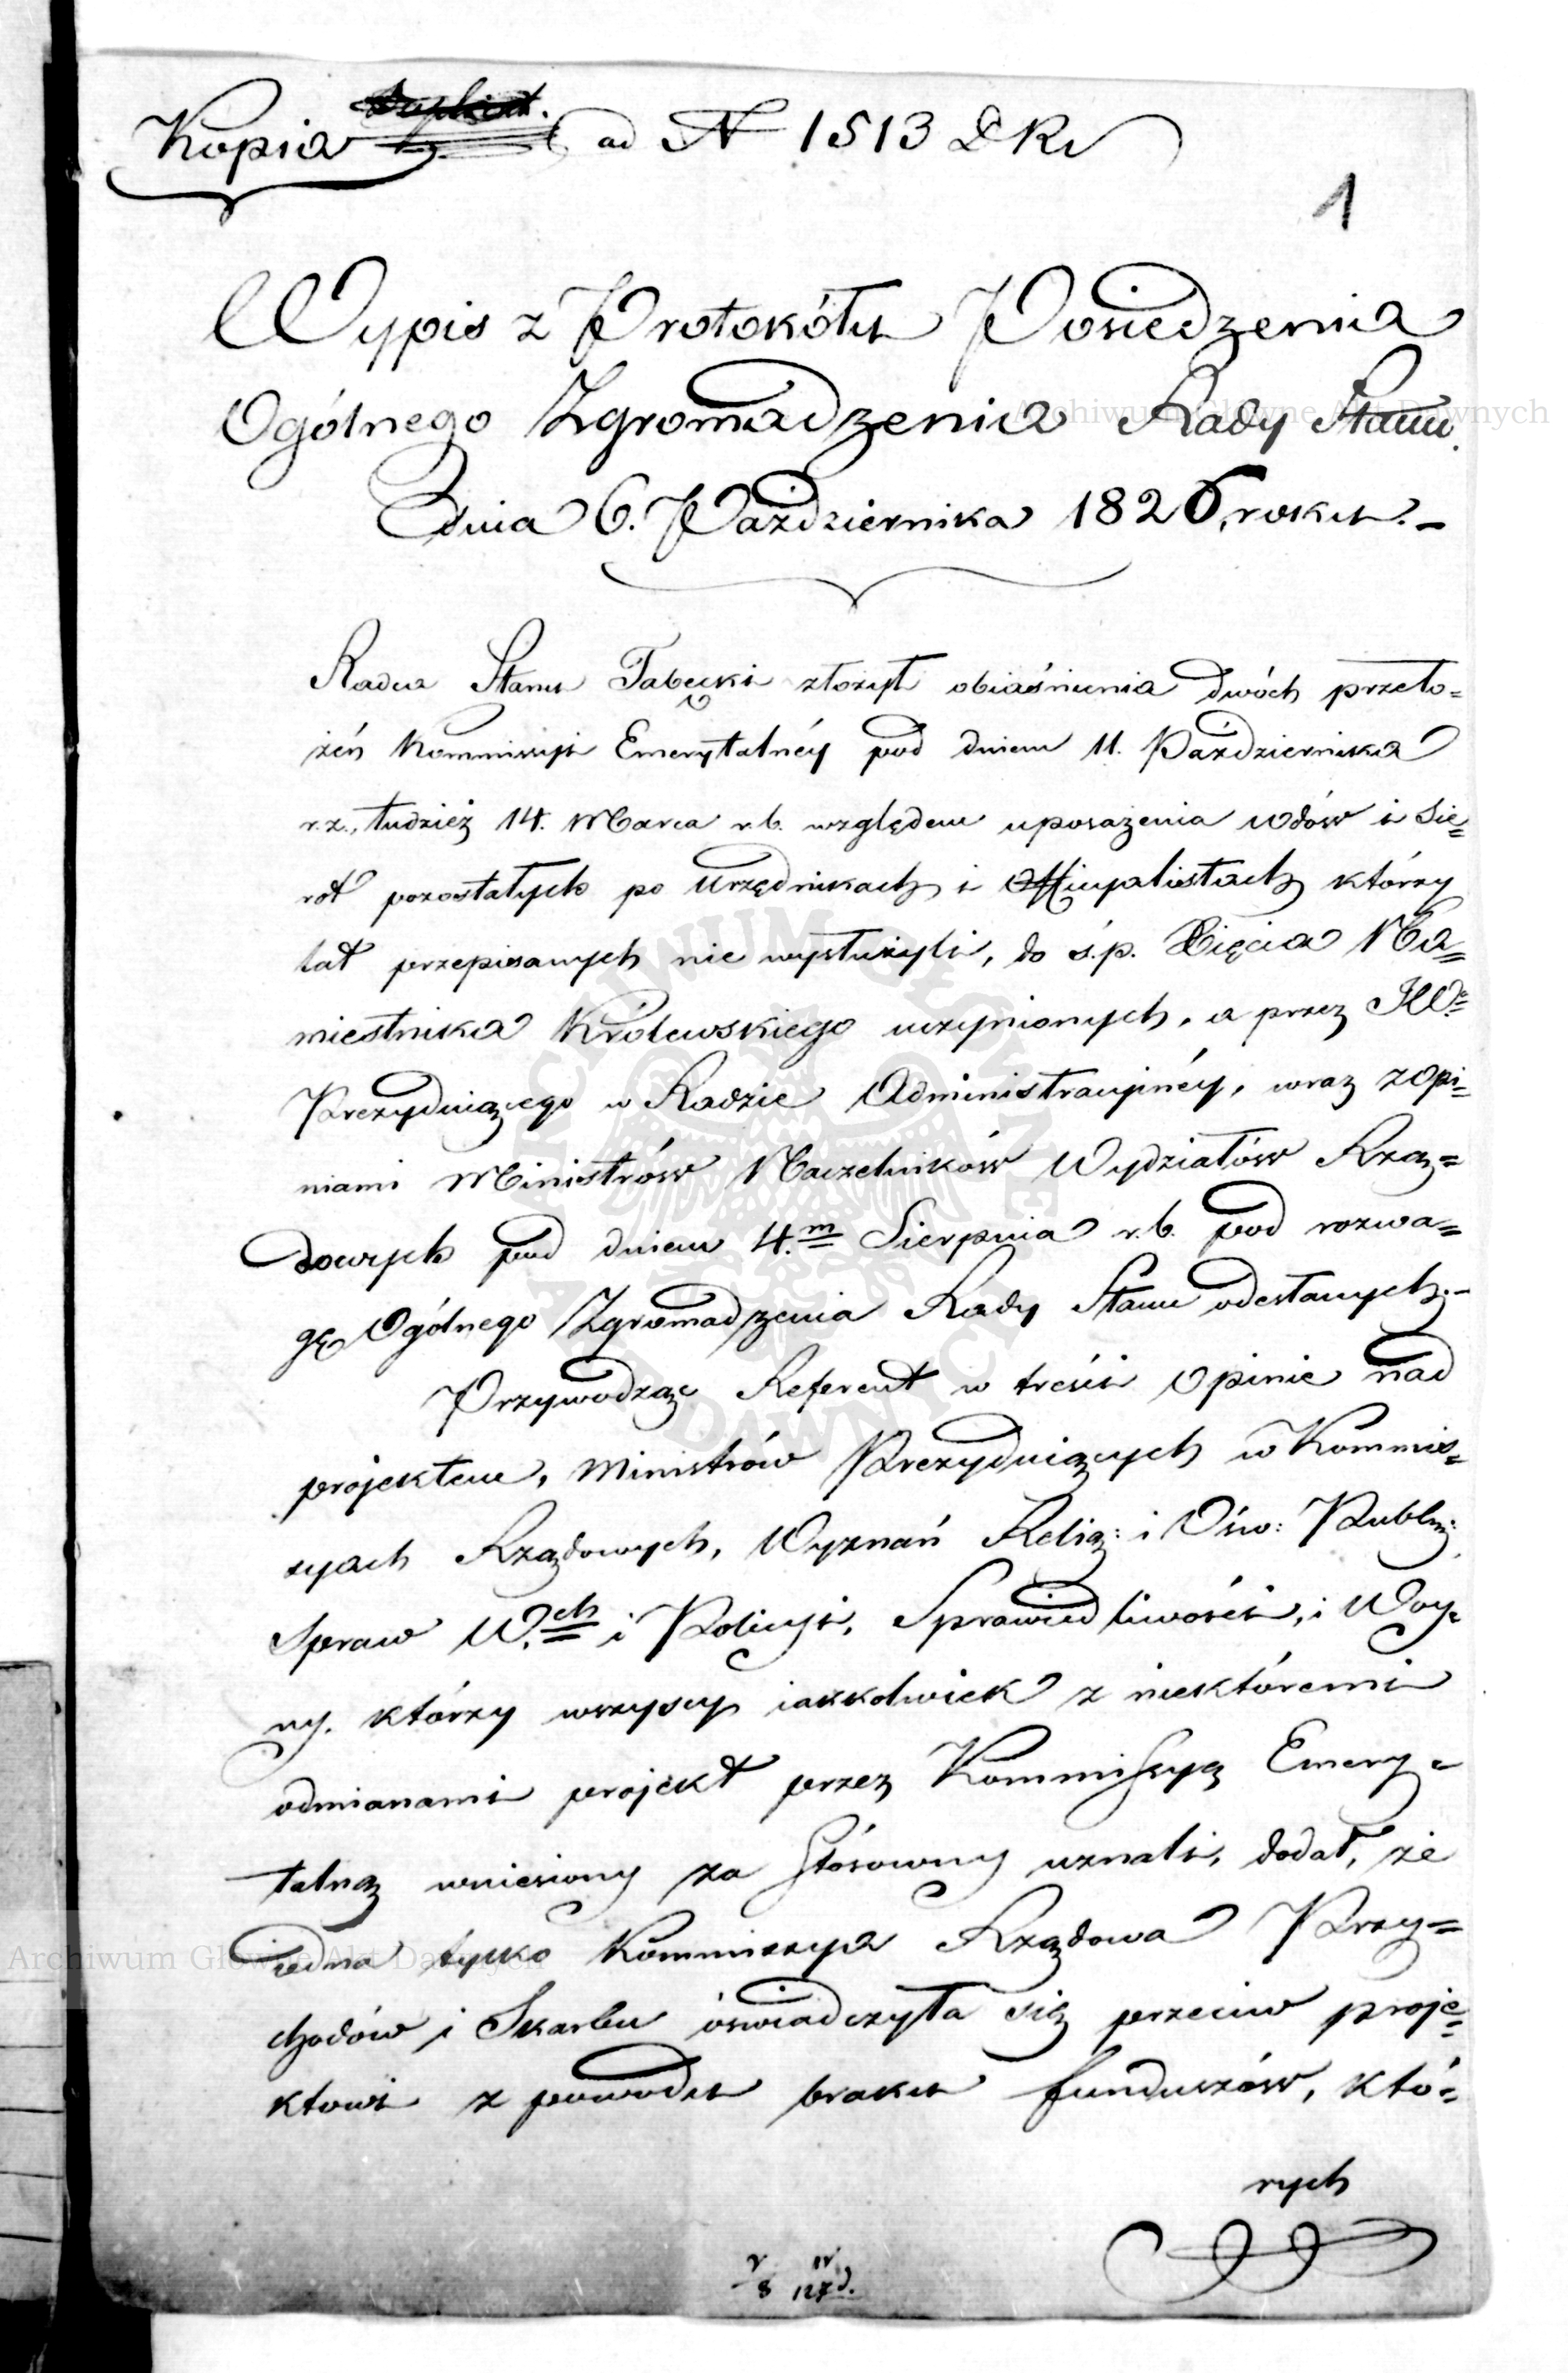 Kopia ad N 1513 DKr
1
Wypis z Protokółu Posiedzenia
Ogólnego Zgromadzenia Rady Stanu.
dnia 6. Października 1826. roku.–
Radca Stanu Tabęcki złożył obiaśnienia dwóch przeło=
żeń Kommissyi Emerytalnéy pod dniem 11. Października
r.z., tudzież 14. Marca r.b. względem uposażenia wdów i Sie=
rot pozostałych po Urzędnikach i Officyalistach którzy
lat przepisanych nie wysłużyli, do ś.p. Xięcia Na=
miestnika Królewskiego uczynionych, a przez JW°=
Prezyduiącego w Radzie Administracyjnéy, wraz z opi=
niami Ministrów Naczelników Wydziałów Rzą=
dowych pod dniem 4.m Sierpnia r.b. pod rozwa=
gę Ogólnego Zgromadzenia Rady Stanu odesłanych.–
Przywodząc Referent w treści Opinie nad
projektem, Ministrów Prezyduiących w Kommis=
syach Rządowych, Wyznań Relig: i Ośw: Publ:
Spraw W.ch i Policyi, Sprawiedliwości, i Woy=
ny. którzy wszyscy iakkolwiek z niektóremi
odmianami projekt przez Kommissyą Emery=
talną wniesiony za stósowny uznali, dodał, że
iedna tylko Kommissya Rządowa Przy=
chodów i Skarbu óswiadczyła się przeciw proje=
ktowi z powodu braku funduszów, któ=
rych
Archiwum Główne Akt Dawnych
Archiwum Główne Akt Dawnych
ARCHIWUM GŁÓWNE AKT DAWNYCH